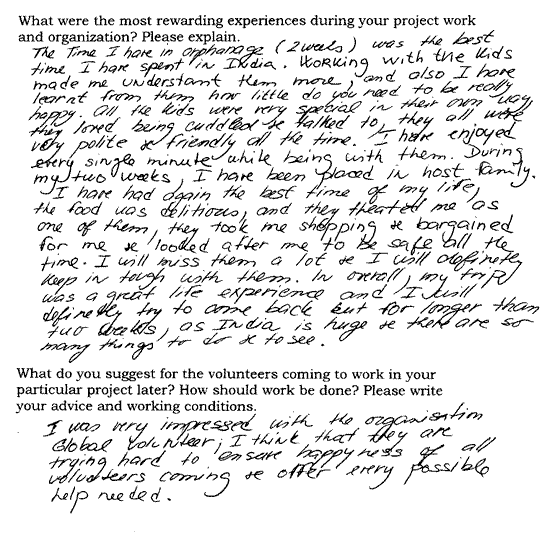 What were the most rewarding experiences during your project work
and organization? Please explain.
The Time I have in orphanage (2 weeks) was the best
time, I have spent in India. Working with the kids
made me understant them more, and also I have
learnt from them how little do you need to be really
happy. All the kids were very special in their own way,
they loved being cuddled & talked to, they all were
very polite & friendly all the time. I have enjoyed
every single minute while being with them. During
my two weeks, I have been placed in host family.
I have had again the best time of my life,
the food was delitious, and they theated me as
one of them, they took me shopping & bargained
for me & looked after me to be safe all the
time. I will miss them a lot & I will definetly
keep in tough with them. In overall, my trip
was a great life experience and I will
definetly try to come back but for longer than
two weeks, as India is huge & there are so
many things to do & to see.
What do you suggest for the volunteers coming to work in your
particular project later? How should work be done? Please write
your advice and working conditions.
I was very impressed with the organisation
Global Volunteer; I think that they are
trying hard to ensure happyness of all
volunteers coming & offer every possible
help needed.